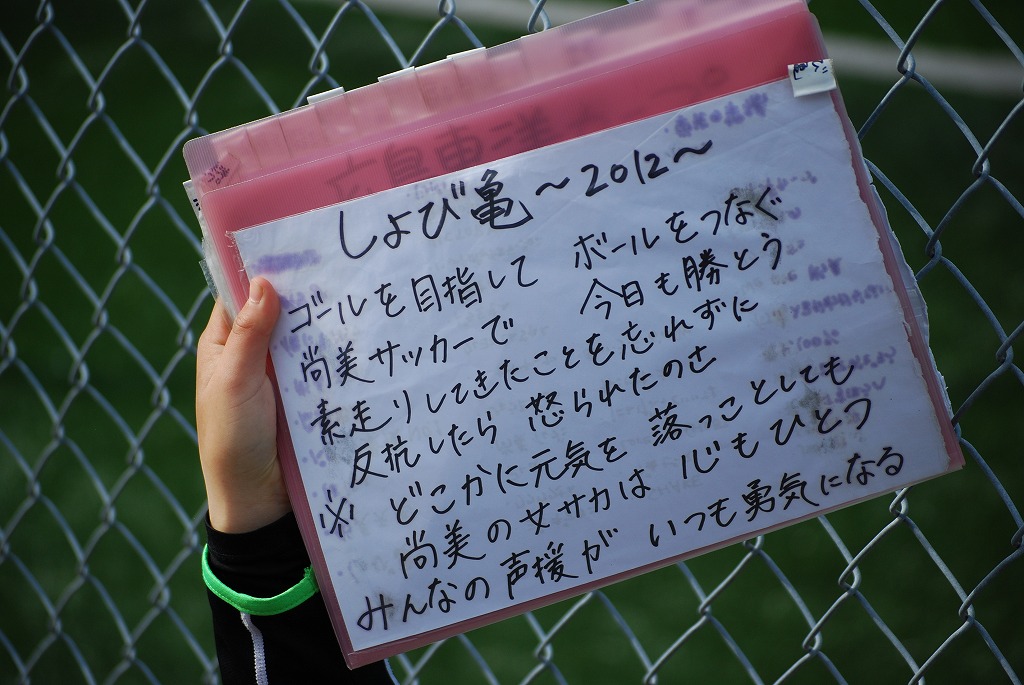 しょび亀～2012～
ゴールを目指して ボールをつなぐ
尚美サッカーで 今日も勝とう
素走りしてきたことを忘れずに
反抗したら 怒られたのさ
※ どこかに元気を 落っことしても
尚美の女サカは 心もひとつ
みんなの声援が いつも勇気になる